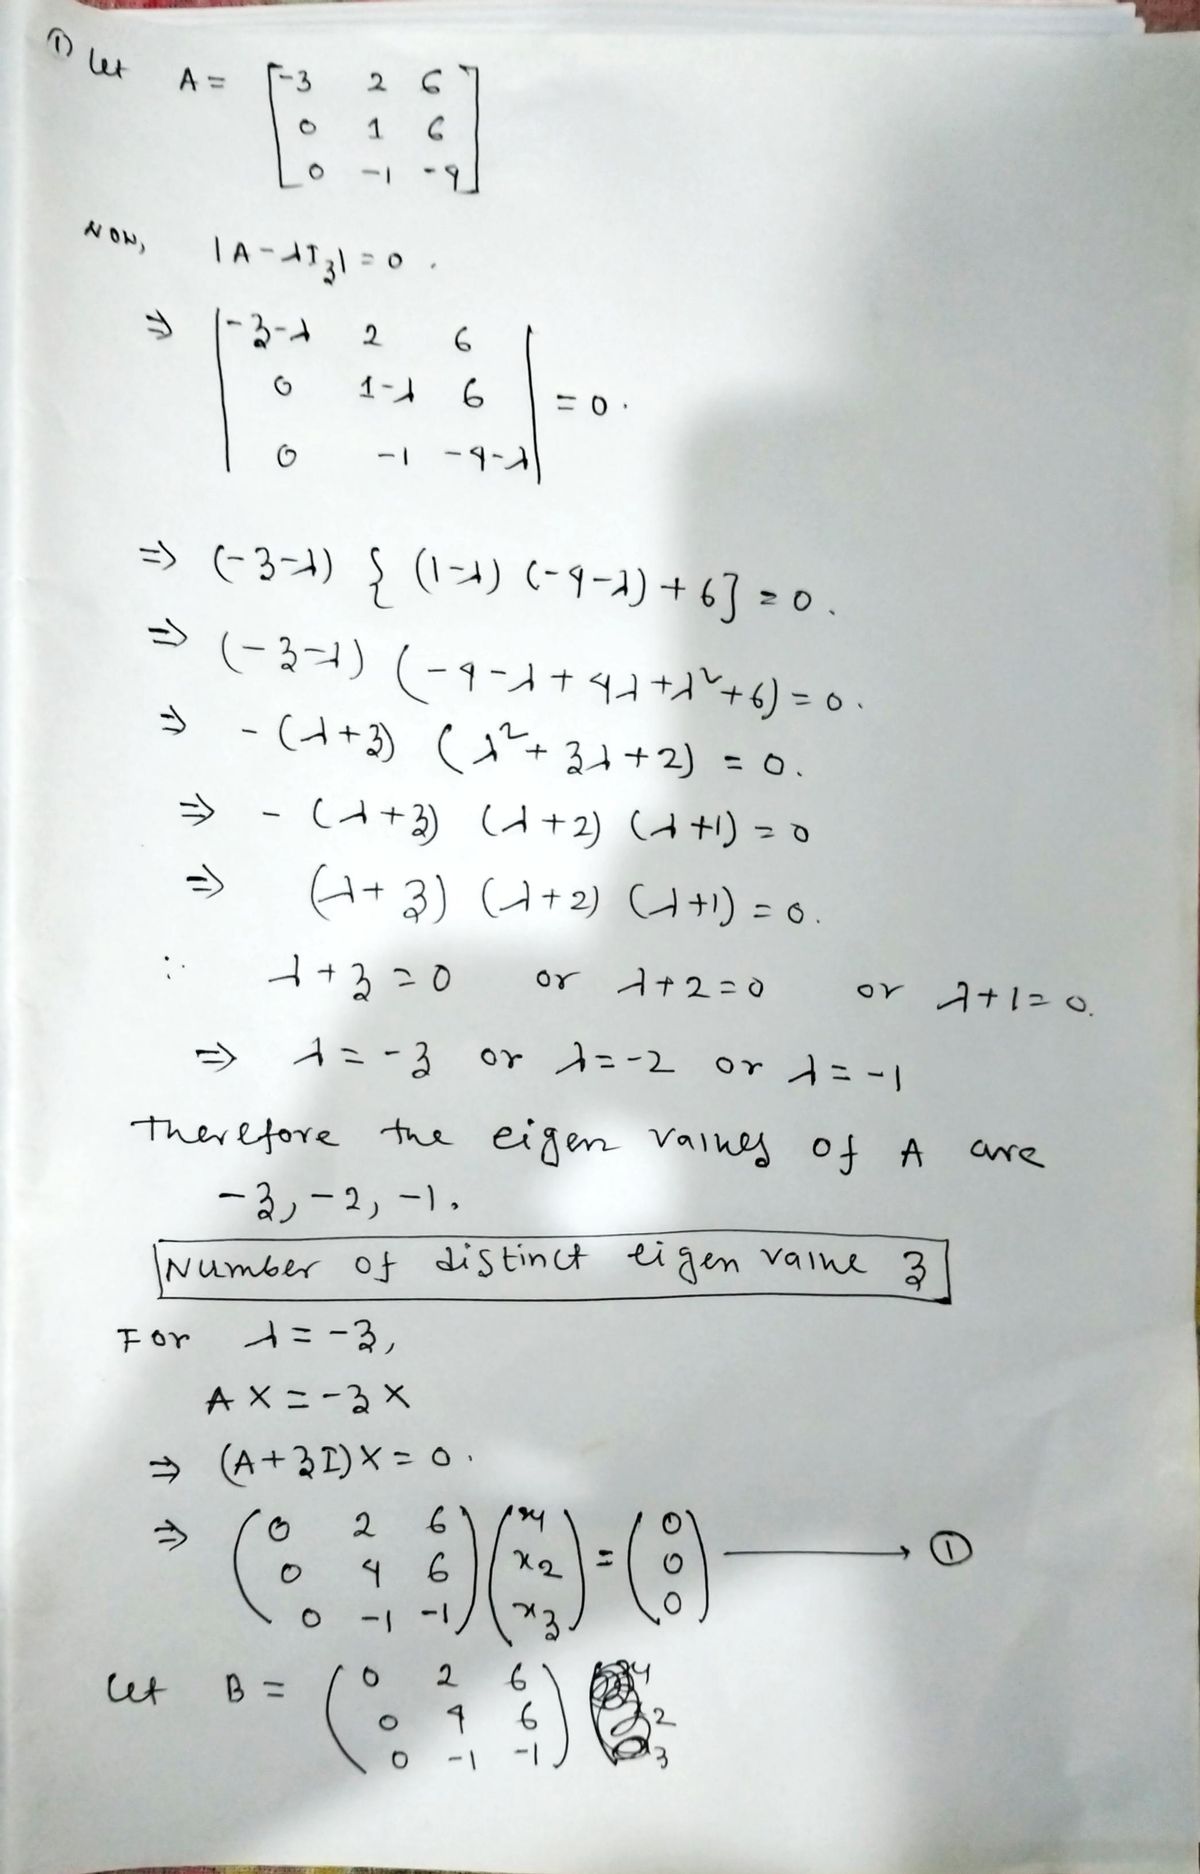 ① Let A = [-3 2 6
0 1 6
0 -1 -4]
NOW, |A-λI₃| = 0.
⇒ |-3-λ 2 6
0 1-λ 6 | = 0.
0 -1 -4-λ|
⇒ (-3-λ) { (1-λ) (-4-λ) + 6] = 0.
⇒ (-3-λ) (-4-λ+4λ+λ²+6) = 0.
⇒ -(λ+3) (λ²+3λ+2) = 0.
⇒ - (λ+3) (λ+2) (λ+1) = 0
⇒ (λ+3) (λ+2) (λ+1) = 0.
∴ λ+3=0 or λ+2=0 or λ+1=0.
⇒ λ=-3 or λ=-2 or λ=-1
Therefore the eigen values of A are
-3, -2, -1.
Number of distinct eigen value 3
For λ=-3,
AX=-3X
⇒ (A+3I)X=0.
⇒ (0 2 6 (x1 (0
0 4 6 x2 = 0 → ①
0 -1 -1) x3) 0)
Let B = (0 2 6
0 4 6
0 -1 -1)